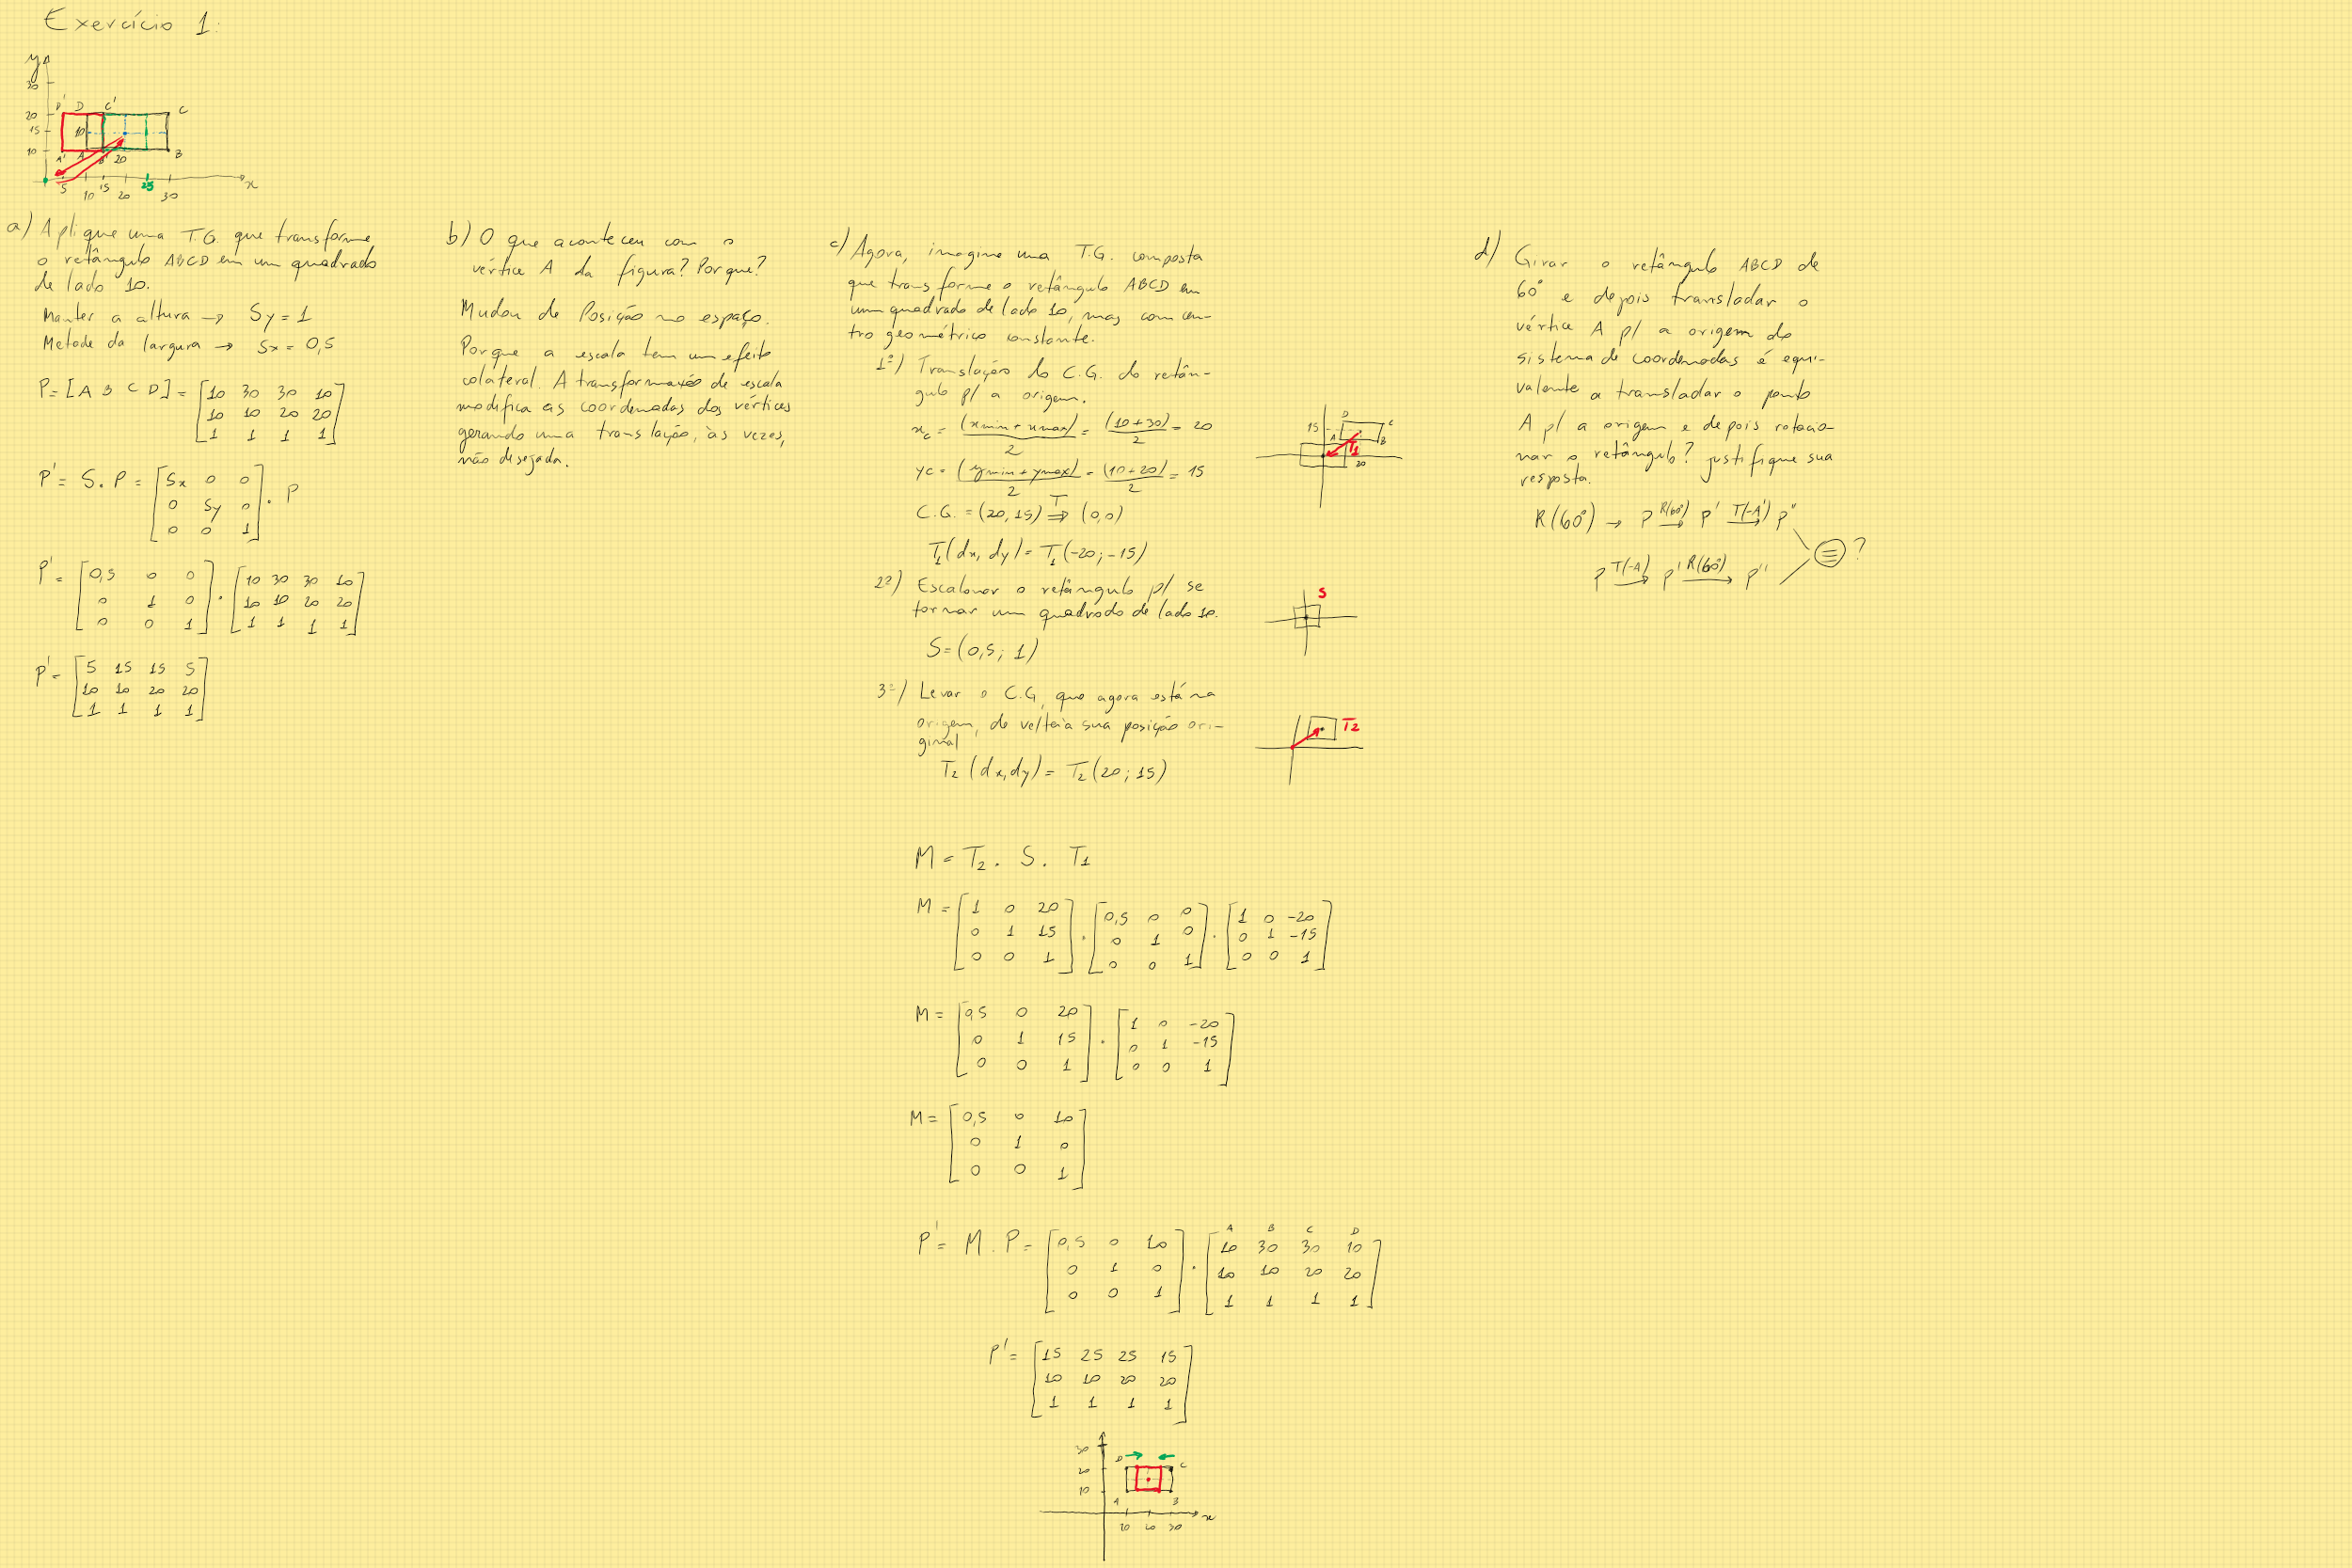 Exercício 1:
y
30
D' D C' C
20
15 10
10
A' A B' 20 B
5 10 15 20 25 30 x
a) Aplique uma T.G. que transforme
o retângulo ABCD em um quadrado
de lado 10.
Manter a altura → Sy = 1
Metade da largura → Sx = 0,5
P = [A B C D] = [10 30 30 10
10 10 20 20
1 1 1 1]
P' = S . P = [Sx 0 0
0 Sy 0
0 0 1] . P
P' = [0,5 0 0 0 1 0 0 0 1] . [10 30 30 10
10 10 20 20
1 1 1 1]
P' = [5 15 15 5
10 10 20 20
1 1 1 1]
b) O que aconteceu com o
vértice A da figura? Por que?
Mudou de Posição no espaço.
Porque a escala tem um efeito
colateral. A transformação de escala
modifica as coordenadas dos vértices
gerando uma translação, às vezes,
não desejada.
c) Agora, imagine uma T.G. composta
que transforme o retângulo ABCD em
um quadrado de lado 10, mas com cen-
tro geométrico constante.
1º) Translação do C.G. do retân-
gulo p/ a origem.
xc = (xmin + xmax)/2 = (10+30)/2 = 20
yc = (ymin + ymax)/2 = (10+20)/2 = 15
C.G. = (20,15) T⇒ (0,0)
T1(dx, dy) = T1(-20; -15)
D C
15
A B
T1
20
2º) Escalonar o retângulo p/ se
tornar um quadrado de lado 10.
S = (0,5; 1)
S
3º) Levar o C.G, que agora está na
origem, de volta à sua posição ori-
ginal
T2 (dx,dy) = T2 (20; 15)
T2
M = T2 . S . T1
M = [1 0 20 0 1 15 0 0 1] . [0,5 0 0 0 1 0 0 0 1] . [1 0 -20 0 1 -15 0 0 1]
M = [0,5 0 20 0 1 15 0 0 1] . [1 0 -20 0 1 -15 0 0 1]
M = [0,5 0 10
0 1 0
0 0 1]
A B C D
P' = M . P = [0,5 0 10 0 1 0 0 0 1] . [10 30 30 10
10 10 20 20
1 1 1 1]
P' = [15 25 25 15
10 10 20 20
1 1 1 1]
30
D C
20
10
A B
10 20 30 x
d) Girar o retângulo ABCD de
60° e depois transladar o
vértice A p/ a origem do
sistema de coordenadas é equi-
valente a transladar o ponto
A p/ a origem e depois rotacio-
nar o retângulo? justifique sua
resposta.
R(60°) → P R(60°)→ P' T(-A')→ P''
≡ ?
P T(-A)→ P' R(60°)→ P''